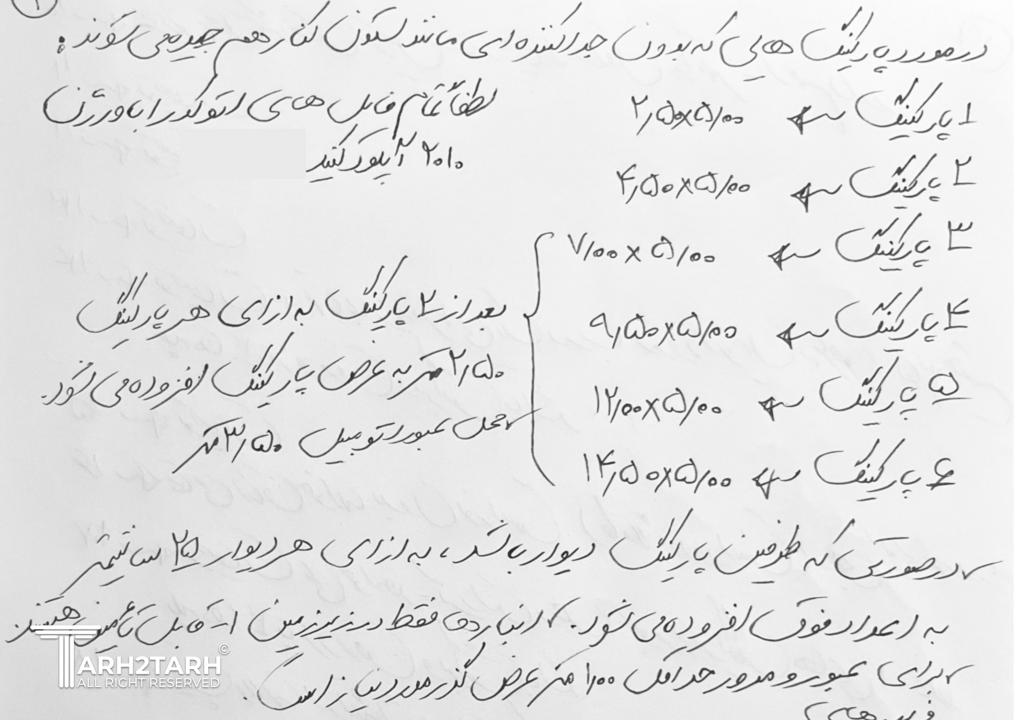 ۱
در مورد پارکینگ هایی که بدون جداکننده ای مانند ستون کنار هم چیده می شوند:
۱ پارکینگ ← ۲/۵۰×۵/۰۰
لطفاً تمام فایل های اتوکد را با ورژن
۲۰۱۰ آپلود کنید
۲ پارکینگ ← ۴/۵۰×۵/۰۰
۳ پارکینگ ← ۷/۰۰×۵/۰۰
۴ پارکینگ ← ۹/۵۰×۵/۰۰
۵ پارکینگ ← ۱۲/۰۰×۵/۰۰
۶ پارکینگ ← ۱۴/۵۰×۵/۰۰
بعد از ۲ پارکینگ به ازای هر پارکینگ
۲/۵۰ متر به عرض پارکینگ افزوده می شود.
محل عبور اتومبیل ۳/۵۰ متر
در صورتی که طرفین پارکینگ دیوار باشد، به ازای هر دیوار ۲۵ سانتیمتر
به اعداد فوق افزوده می شود. انباری فقط در زیرزمین قابل تأمین هستند
برای عبور و مرور حداقل ۱/۰۰ متر عرض گذر مورد نیاز است.
TARH2TARH©
ALL RIGHT RESERVED